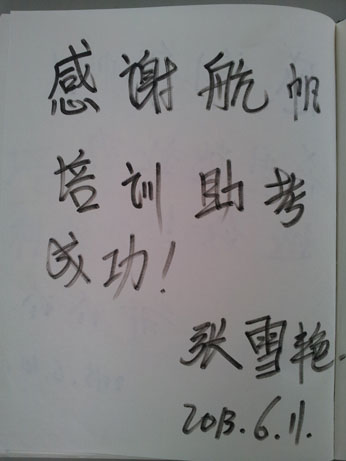 感谢航帆
培训助考
成功!
张雪艳
2013.6.11.